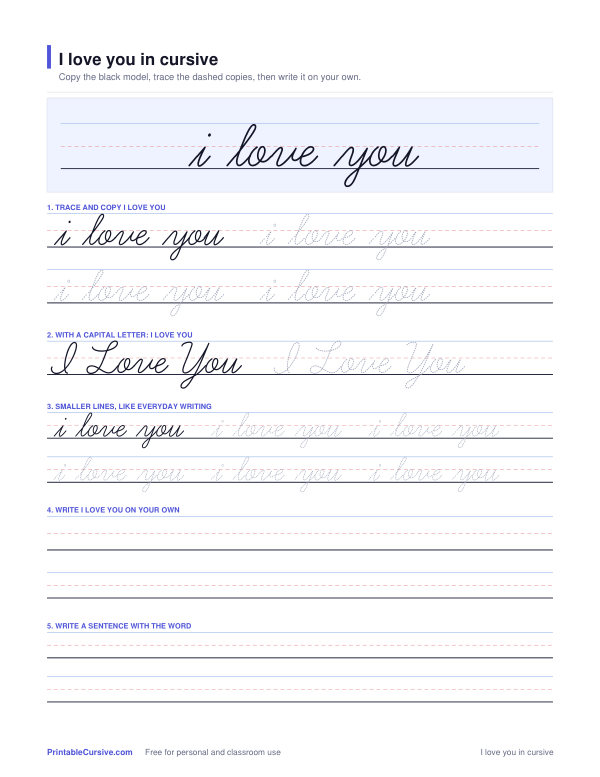 I love you in cursive
Copy the black model, trace the dashed copies, then write it on your own.
i love you
1. TRACE AND COPY I LOVE YOU
i love you i love you
i love you i love you
2. WITH A CAPITAL LETTER: I LOVE YOU
I Love You I Love You
3. SMALLER LINES, LIKE EVERYDAY WRITING
i love you i love you i love you
i love you i love you i love you
4. WRITE I LOVE YOU ON YOUR OWN
5. WRITE A SENTENCE WITH THE WORD
PrintableCursive.com Free for personal and classroom use I love you in cursive